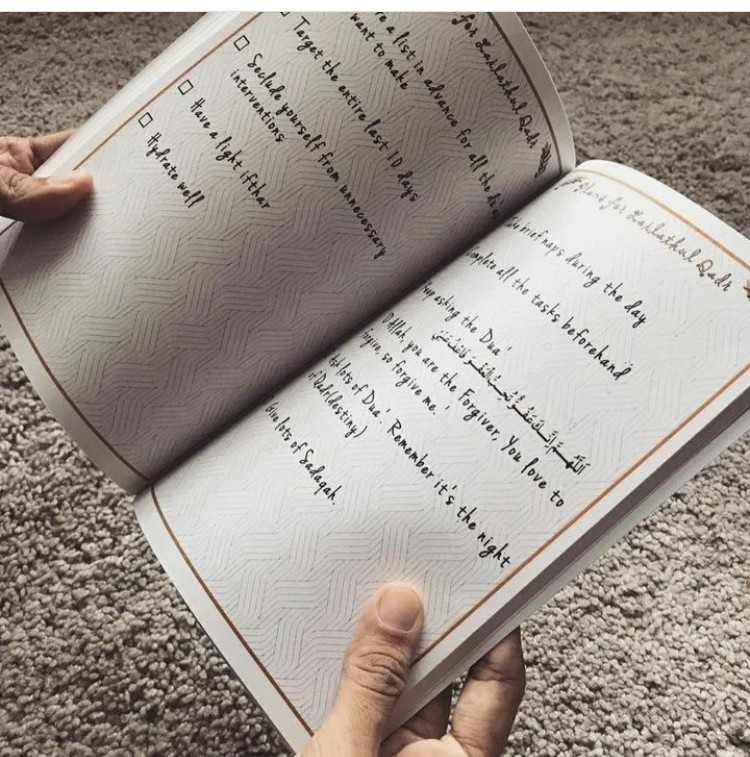 for Lailathul Qadr
a list in advance for all the
want to make
Target the entire last 10 days
Seclude yourself from unnecessary
interventions
Have a light ifthar
Hydrate well
for Lailathul Qadr
brief naps during the day
all the tasks beforehand
asking the Dua'
اللَّهُمَّ إِنَّكَ عَفُوٌّ تُحِبُّ الْعَفْوَ فَاعْفُ عَنِّي
O Allah, you are the Forgiver, You love to
forgive, so forgive me.'
lots of Dua'. Remember it's the night
of Qadr(destiny)
Give lots of Sadaqah.